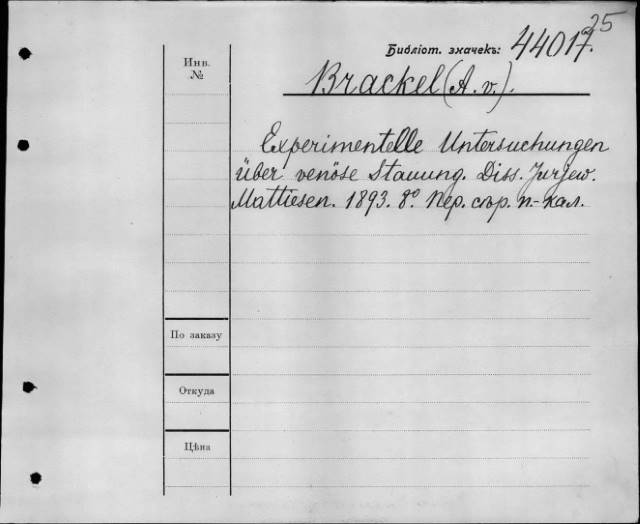 25
Библіот. значекъ: 44017.
Инв.
№
Brackel (A. v.).
Experimentelle Untersuchungen
über venöse Stauung. Diss. Jurjew.
Mattiesen. 1893. 8º. Пер. сѣр. п-кал.
По заказу
Откуда
Цѣна